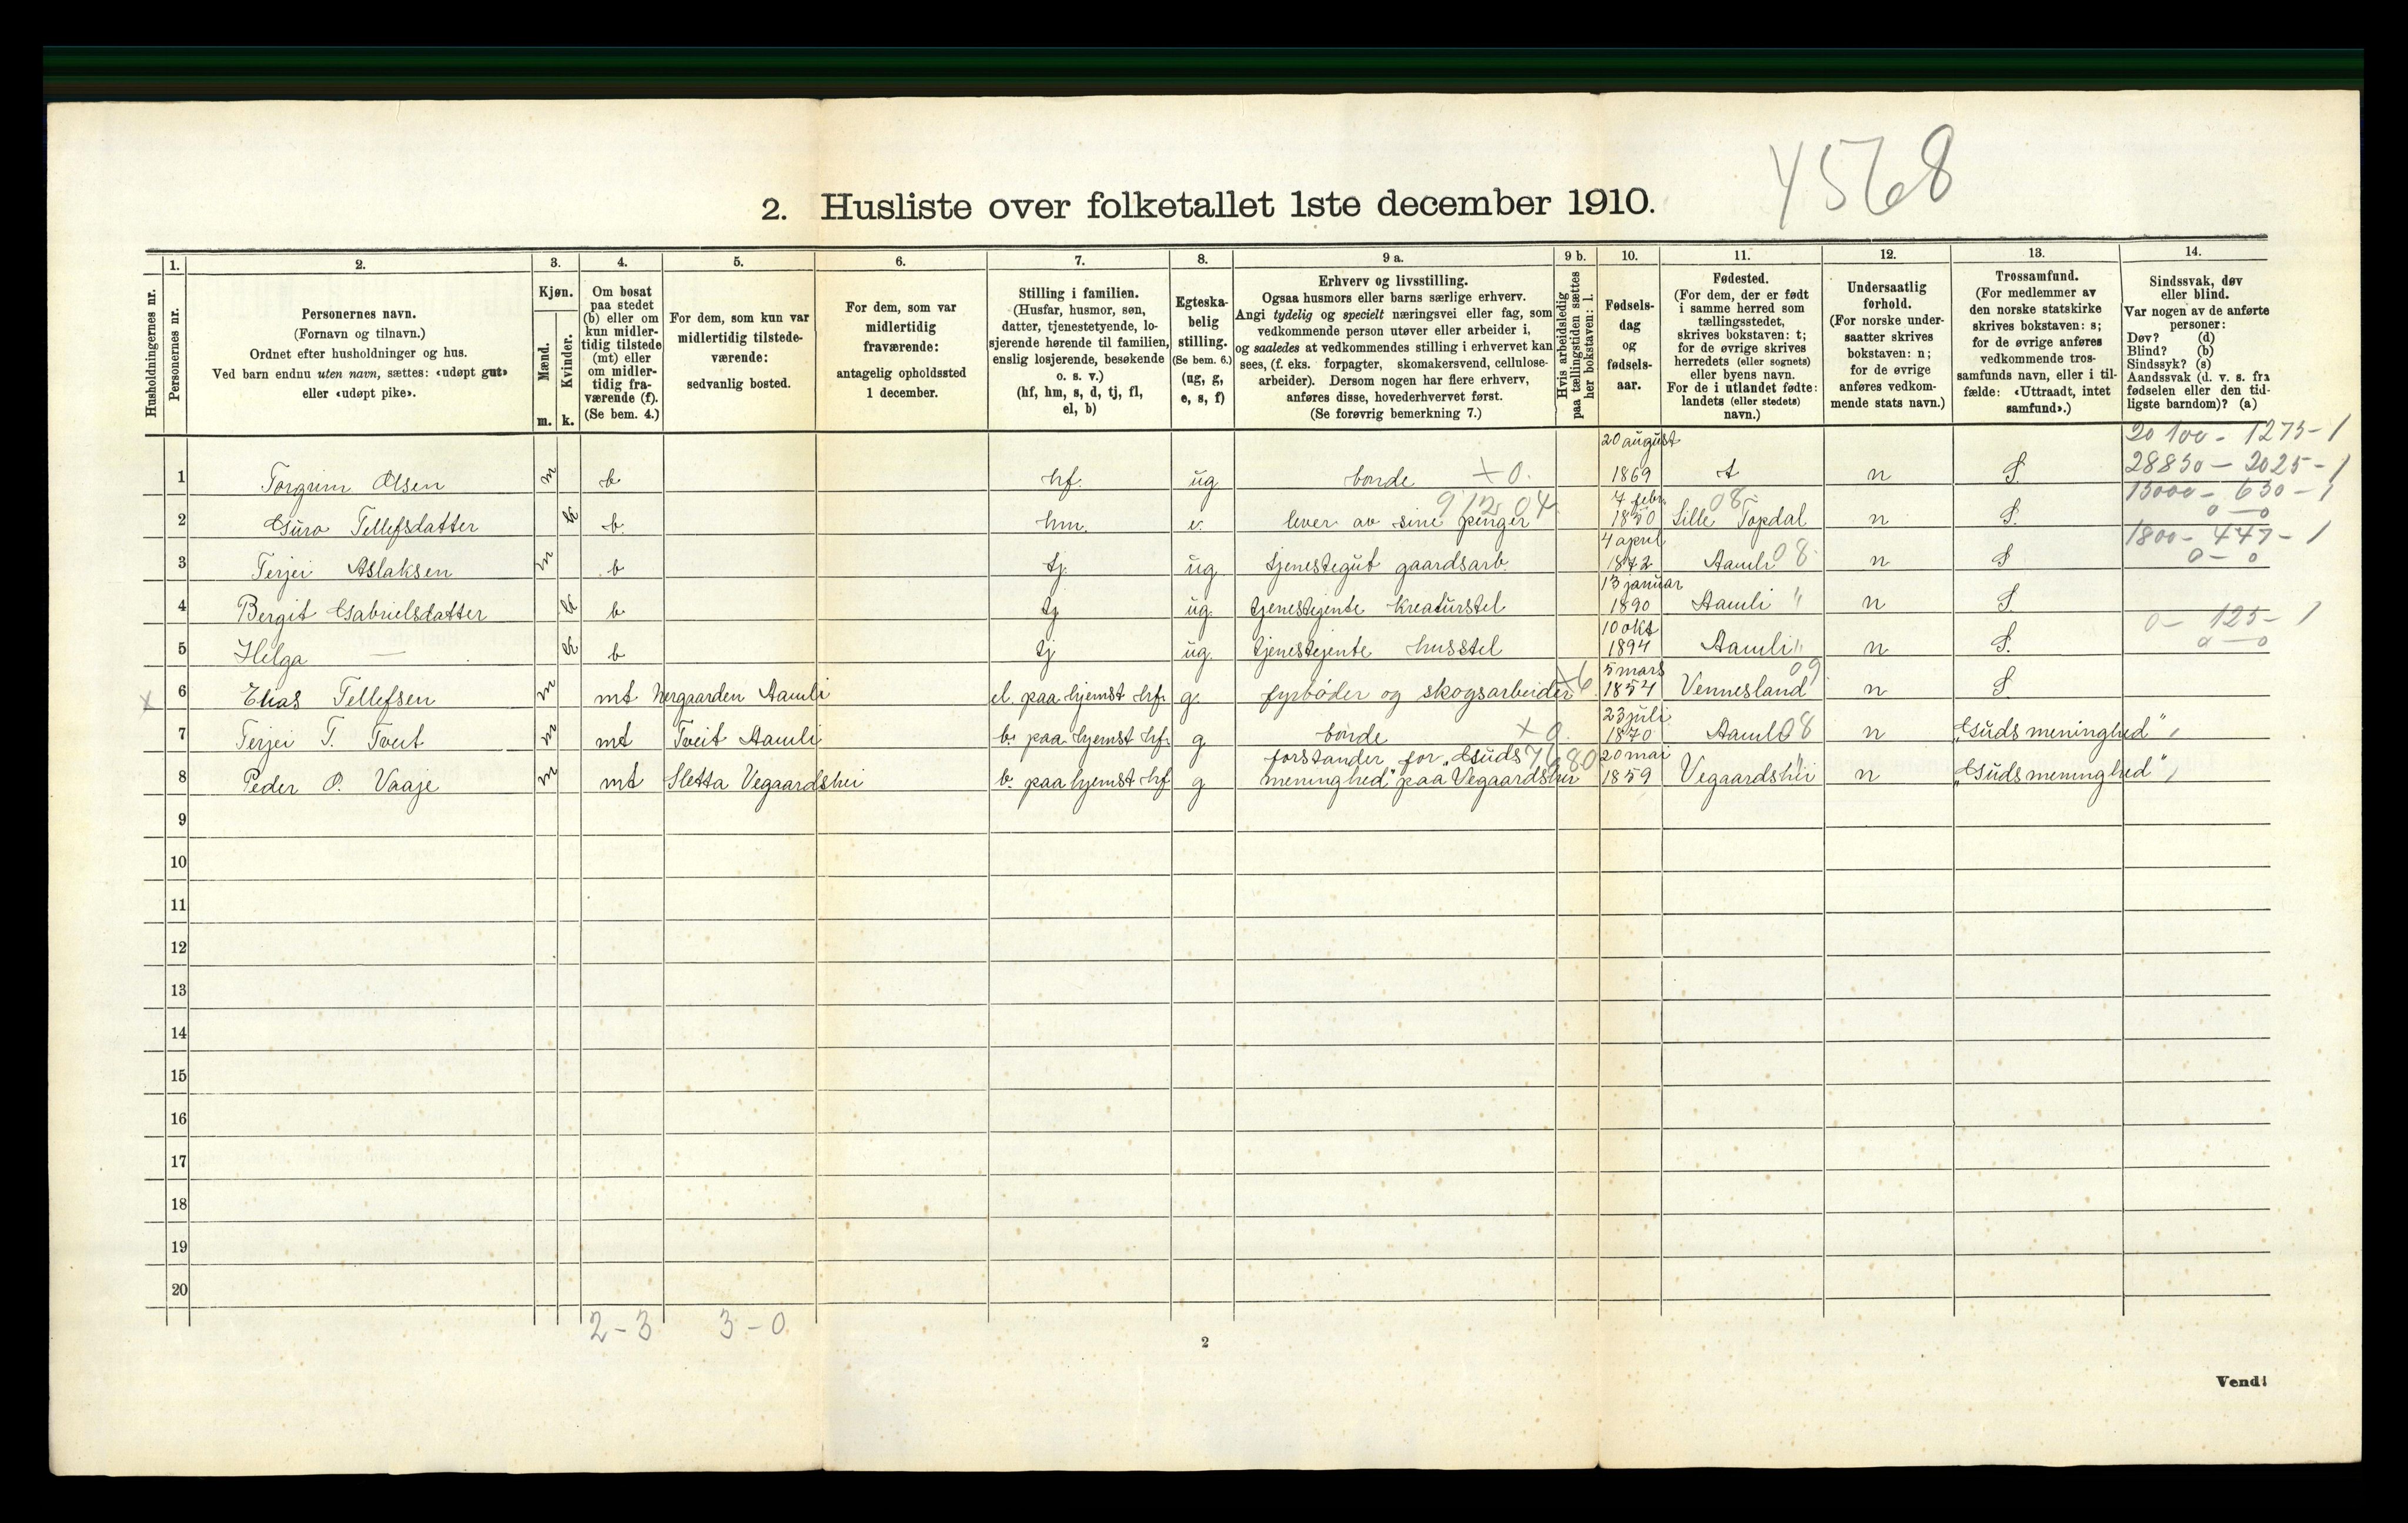 4568
2. Husliste over folketallet 1ste december 1910.
Husholdningernes nr.
1.
Personernes nr.
2.
Personernes navn.
(Fornavn og tilnavn.)
Ordnet efter husholdninger og hus.
Ved barn endnu uten navn, sættes: «udøpt gut»
eller «udøpt pike».
3.
Kjøn.
Mænd.
m.
Kvinder.
k.
4.
Om bosat
paa stedet
(b) eller om
kun midler-
tidig tilstede
(mt) eller
om midler-
tidig fra-
værende (f).
(Se bem. 4.)
5.
For dem, som kun var
midlertidig tilstede-
værende:
sedvanlig bosted.
6.
For dem, som var
midlertidig
fraværende:
antagelig opholdssted
1 december.
7.
Stilling i familien.
(Husfar, husmor, søn,
datter, tjenestetyende, lo-
sjerende hørende til familien,
enslig losjerende, besøkende
o. s. v.)
(hf, hm, s, d, tj, fl,
el, b)
8.
Egteska-
belig
stilling.
(Se bem. 6.)
(ug, g,
e, s, f)
9 a.
Erhverv og livsstilling.
Ogsaa husmors eller barns særlige erhverv.
Angi tydelig og specielt næringsvei eller fag, som
vedkommende person utøver eller arbeider i,
og saaledes at vedkommendes stilling i erhvervet kan
sees, (f. eks. forpagter, skomakersvend, cellulose-
arbeider). Dersom nogen har flere erhverv,
anføres disse, hovederhvervet først.
(Se forøvrig bemerkning 7.)
9 b.
Hvis arbeidsledig
paa tællingstiden sættes
her bokstaven: l.
10.
Fødsels-
dag
og
fødsels-
aar.
11.
Fødested.
(For dem, der er født
i samme herred som
tællingsstedet,
skrives bokstaven: t;
for de øvrige skrives
herredets (eller sognets)
eller byens navn.
For de i utlandet fødte:
landets (eller stedets)
navn.)
12.
Undersaatlig
forhold.
(For norske under-
saatter skrives
bokstaven: n;
for de øvrige
anføres vedkom-
mende stats navn.)
13.
Trossamfund.
(For medlemmer av
den norske statskirke
skrives bokstaven: s;
for de øvrige anføres
vedkommende tros-
samfunds navn, eller i til-
fælde: «Uttraadt, intet
samfund».)
14.
Sindssvak, døv
eller blind.
Var nogen av de anførte
personer:
Døv? (d)
Blind? (b)
Sindssyk? (s)
Aandssvak (d. v. s. fra
fødselen eller den tid-
ligste barndom)? (a)
20100 - 1275 - 1
28850 - 2025 - 1
15000 - 650 - 1
0 - 0
1800 - 447 - 1
0 - 0
0 - 125 - 1
0 - 0
1 Torgrim Olsen m b hf. ug bonde x 0. 20 august 1869 t n S.
2 Guro Tellefsdatter k b. hm. e. lever av sine penger 9 12 04 7 febr. 1850 Lille Topdal 08 n S.
3 Terjei Aslaksen m b tj. ug tjenestegut gaardsarb. 4 april 1872 Aamli 08 n S
4 Bergit Gabrielsdatter k b tj ug. tjenestejente kreaturstel 13 januar 1890 Aamli " n S
5 Helga — k b tj ug. tjenestejente husstel 10 okt 1894 Aamli " n S.
x 6 Elias Tellefsen m mt Nergaarden Aamli el. paa hjemst hf. g. fyrbøder og skogsarbeider x6 5 mars 1854 Vennesland 09 n S.
7 Terjei T. Tveit m mt Tveit Aamli b. paa hjemst hf. g bonde x 0. 23 juli 1870 Aamli 08 n „Guds meninghed"
8 Peder O. Vaaje m mt Sletta Vegaardshei b. paa hjemst hf g forstander for „Guds
meninghed" paa Vegaardshei 20 mai 1859 Vegaardshei " n „Guds meninghed"
9
10
11
12
13
14
15
16
17
18
19
20
2 - 3 3 - 0
2
Vend!